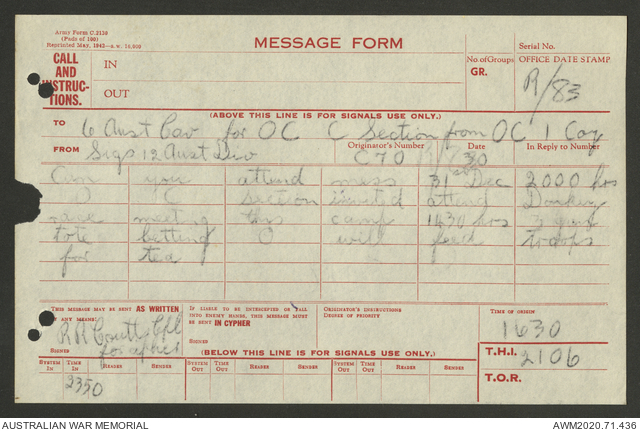 Army Form C.2136
(Pads of 100)
Reprinted May, 1942
MESSAGE FORM
Serial No.
CALL AND INSTRUC-TIONS.
IN
OUT
No of Groups
GR.
OFFICE DATE STAMP
R/83
(ABOVE THIS LINE IS FOR SIGNALS USE ONLY.)
TO 6 Aust Cav for OC C Section from OC 1 Coy
FROM Sigs 12 Aust Div
Originator's Number
C70
Date
30
In Reply to Number
Can you attend mess 31 Dec 2000 hrs
O C section invited attend Donkey
race meeting this camp 1430 hrs
tote betting O will feed troops
for tea
THIS MESSAGE MAY BE SENT AS WRITTEN BY ANY MEANS.
IF LIABLE TO BE INTERCEPTED OR FALL INTO ENEMY HANDS, THIS MESSAGE MUST BE SENT IN CYPHER
ORIGINATOR'S INSTRUCTIONS
DEGREE OF PRIORITY
TIME OF ORIGIN
1630
SIGNED
SIGNED
(BELOW THIS LINE IS FOR SIGNALS USE ONLY.)
T.H.I. 2106
SYSTEM IN
TIME IN
READER
SENDER
SYSTEM OUT
TIME OUT
READER
SENDER
SYSTEM OUT
TIME OUT
READER
SENDER
T.O.R.
2350
AUSTRALIAN WAR MEMORIAL
AWM2020.71.436